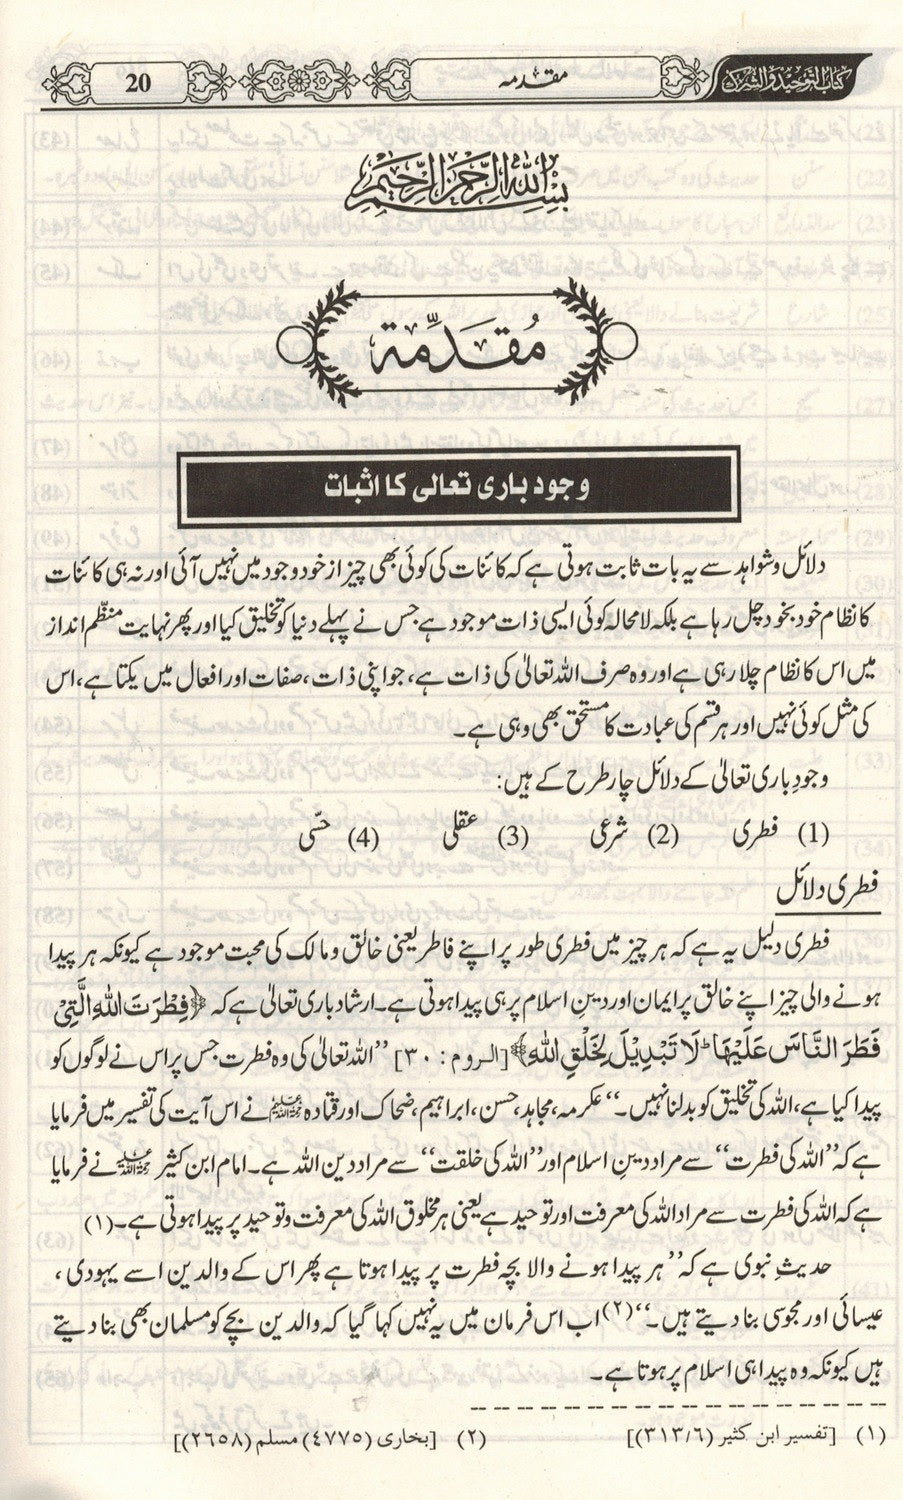 کتاب التوحید والشرک
مقدمہ
20
بسم الله الرحمن الرحيم
مُقَدِّمَة
وجود باری تعالی کا اثبات
دلائل و شواہد سے یہ بات ثابت ہوتی ہے کہ کائنات کی کوئی بھی چیز از خود وجود میں نہیں آئی اور نہ ہی کائنات
کا نظام خود بخود چل رہا ہے بلکہ لامحالہ کوئی ایسی ذات موجود ہے جس نے پہلے دنیا کو تخلیق کیا اور پھر نہایت منظّم انداز
میں اس کا نظام چلا رہی ہے اور وہ صرف اللہ تعالیٰ کی ذات ہے، جو اپنی ذات، صفات اور افعال میں یکتا ہے، اس
کی مثل کوئی نہیں اور ہر قسم کی عبادت کا مستحق بھی وہی ہے۔
وجودِ باری تعالیٰ کے دلائل چار طرح کے ہیں:
(1) فطری (2) شرعی (3) عقلی (4) حسّی
فطری دلائل
فطری دلیل یہ ہے کہ ہر چیز میں فطری طور پر اپنے فاطر یعنی خالق و مالک کی محبت موجود ہے کیونکہ ہر پیدا
ہونے والی چیز اپنے خالق پر ایمان اور دینِ اسلام پر ہی پیدا ہوتی ہے۔ ارشاد باری تعالیٰ ہے کہ ﴿فِطْرَتَ اللّٰهِ الَّتِيْ
فَطَرَ النَّاسَ عَلَيْهَا ؕ لَا تَبْدِيْلَ لِخَلْقِ اللّٰهِ﴾ [الروم: ٣٠] ’’اللہ تعالیٰ کی وہ فطرت جس پر اس نے لوگوں کو
پیدا کیا ہے، اللہ کی تخلیق کو بدلنا نہیں۔‘‘ عکرمہ، مجاہد، حسن، ابراہیم، ضحاک اور قتادہ نے اس آیت کی تفسیر میں فرمایا
ہے کہ ’’اللہ کی فطرت‘‘ سے مراد دینِ اسلام اور ’’اللہ کی خلقت‘‘ سے مراد دین اللہ ہے۔ امام ابن کثیر نے فرمایا
ہے کہ اللہ کی فطرت سے مراد اللہ کی معرفت اور توحید ہے یعنی ہر مخلوق اللہ کی معرفت و توحید پر پیدا ہوتی ہے۔(۱)
حدیثِ نبوی ہے کہ ’’ہر پیدا ہونے والا بچہ فطرت پر پیدا ہوتا ہے پھر اس کے والدین اسے یہودی،
عیسائی اور مجوسی بنا دیتے ہیں۔‘‘(۲) اب اس فرمان میں یہ نہیں کہا گیا کہ والدین بچے کو مسلمان بھی بنا دیتے
ہیں کیونکہ وہ پیدا ہی اسلام پر ہوتا ہے۔
(۱) [تفسیر ابن کثیر (۳۱۳/۶)] (۲) [بخاری (۴۷۷۵) مسلم (۲۶۵۸)]